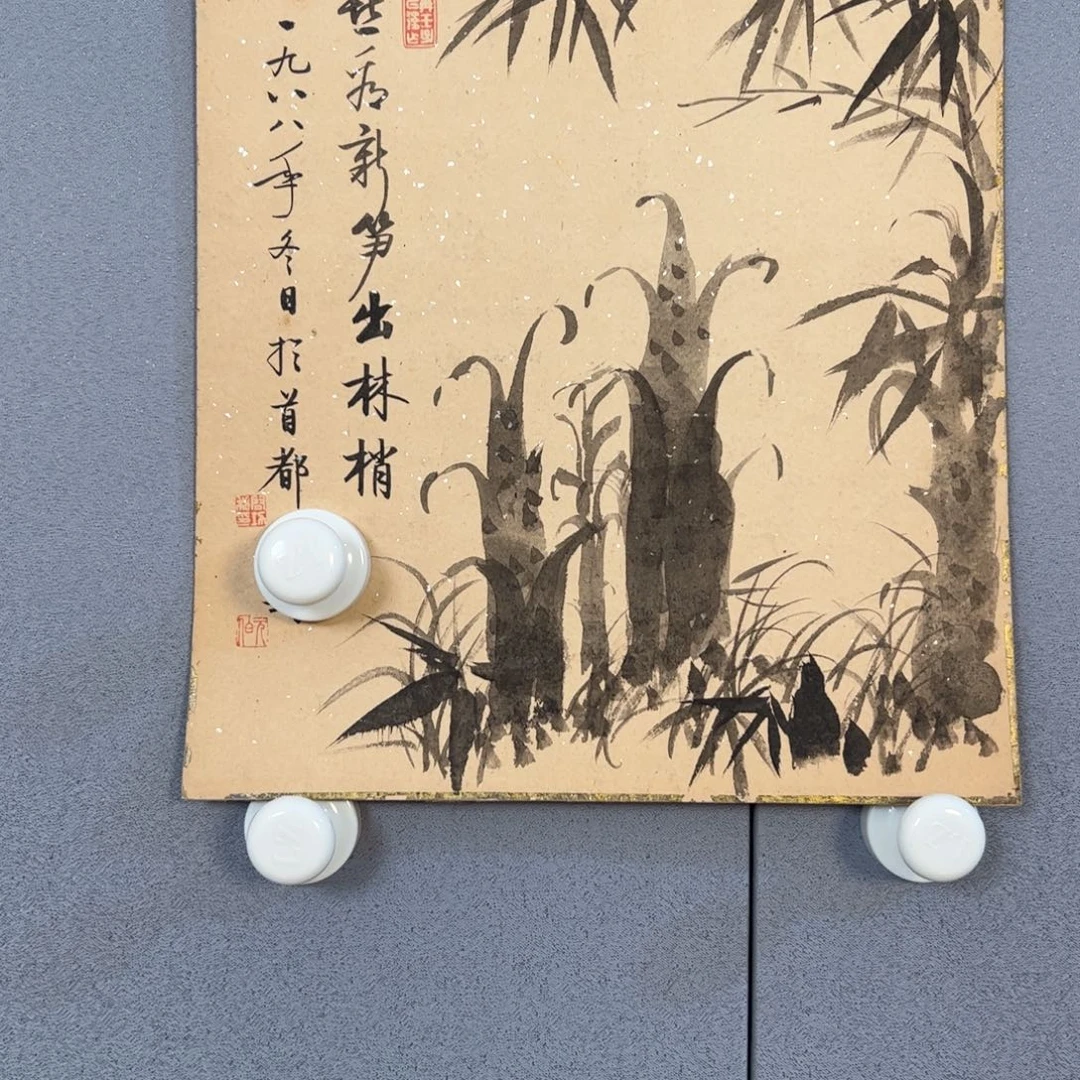 看新笋出林梢
一九八八年冬日於首都